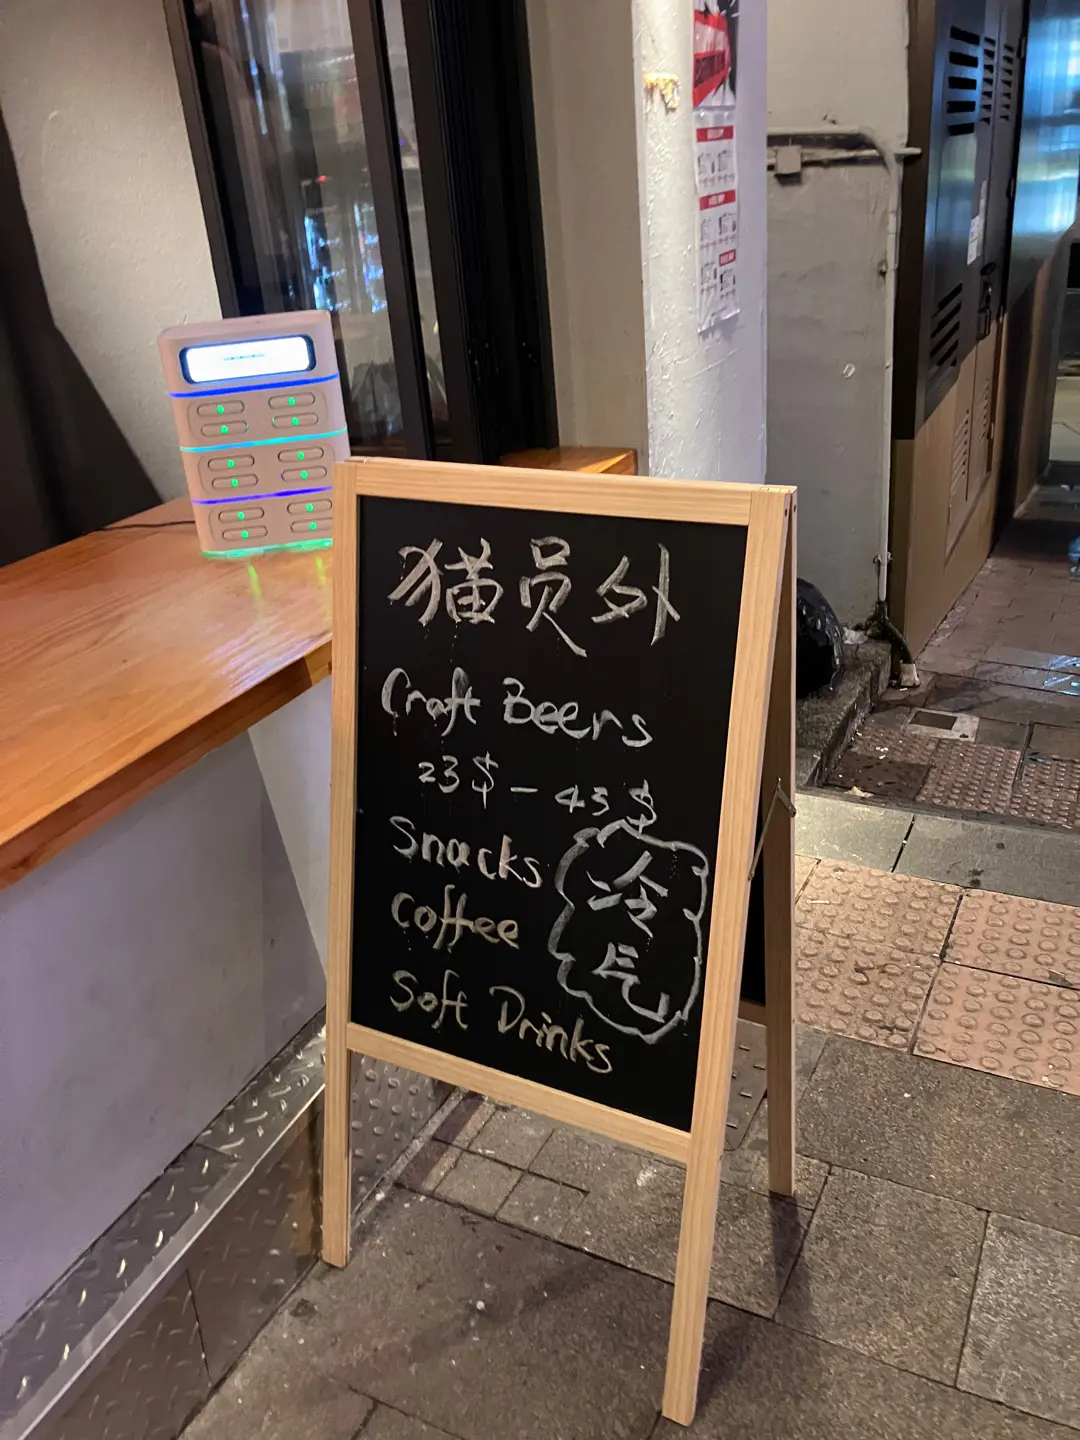 猫员外
Craft Beers
23$ - 45$
Snacks
Coffee
Soft Drinks
冷
气